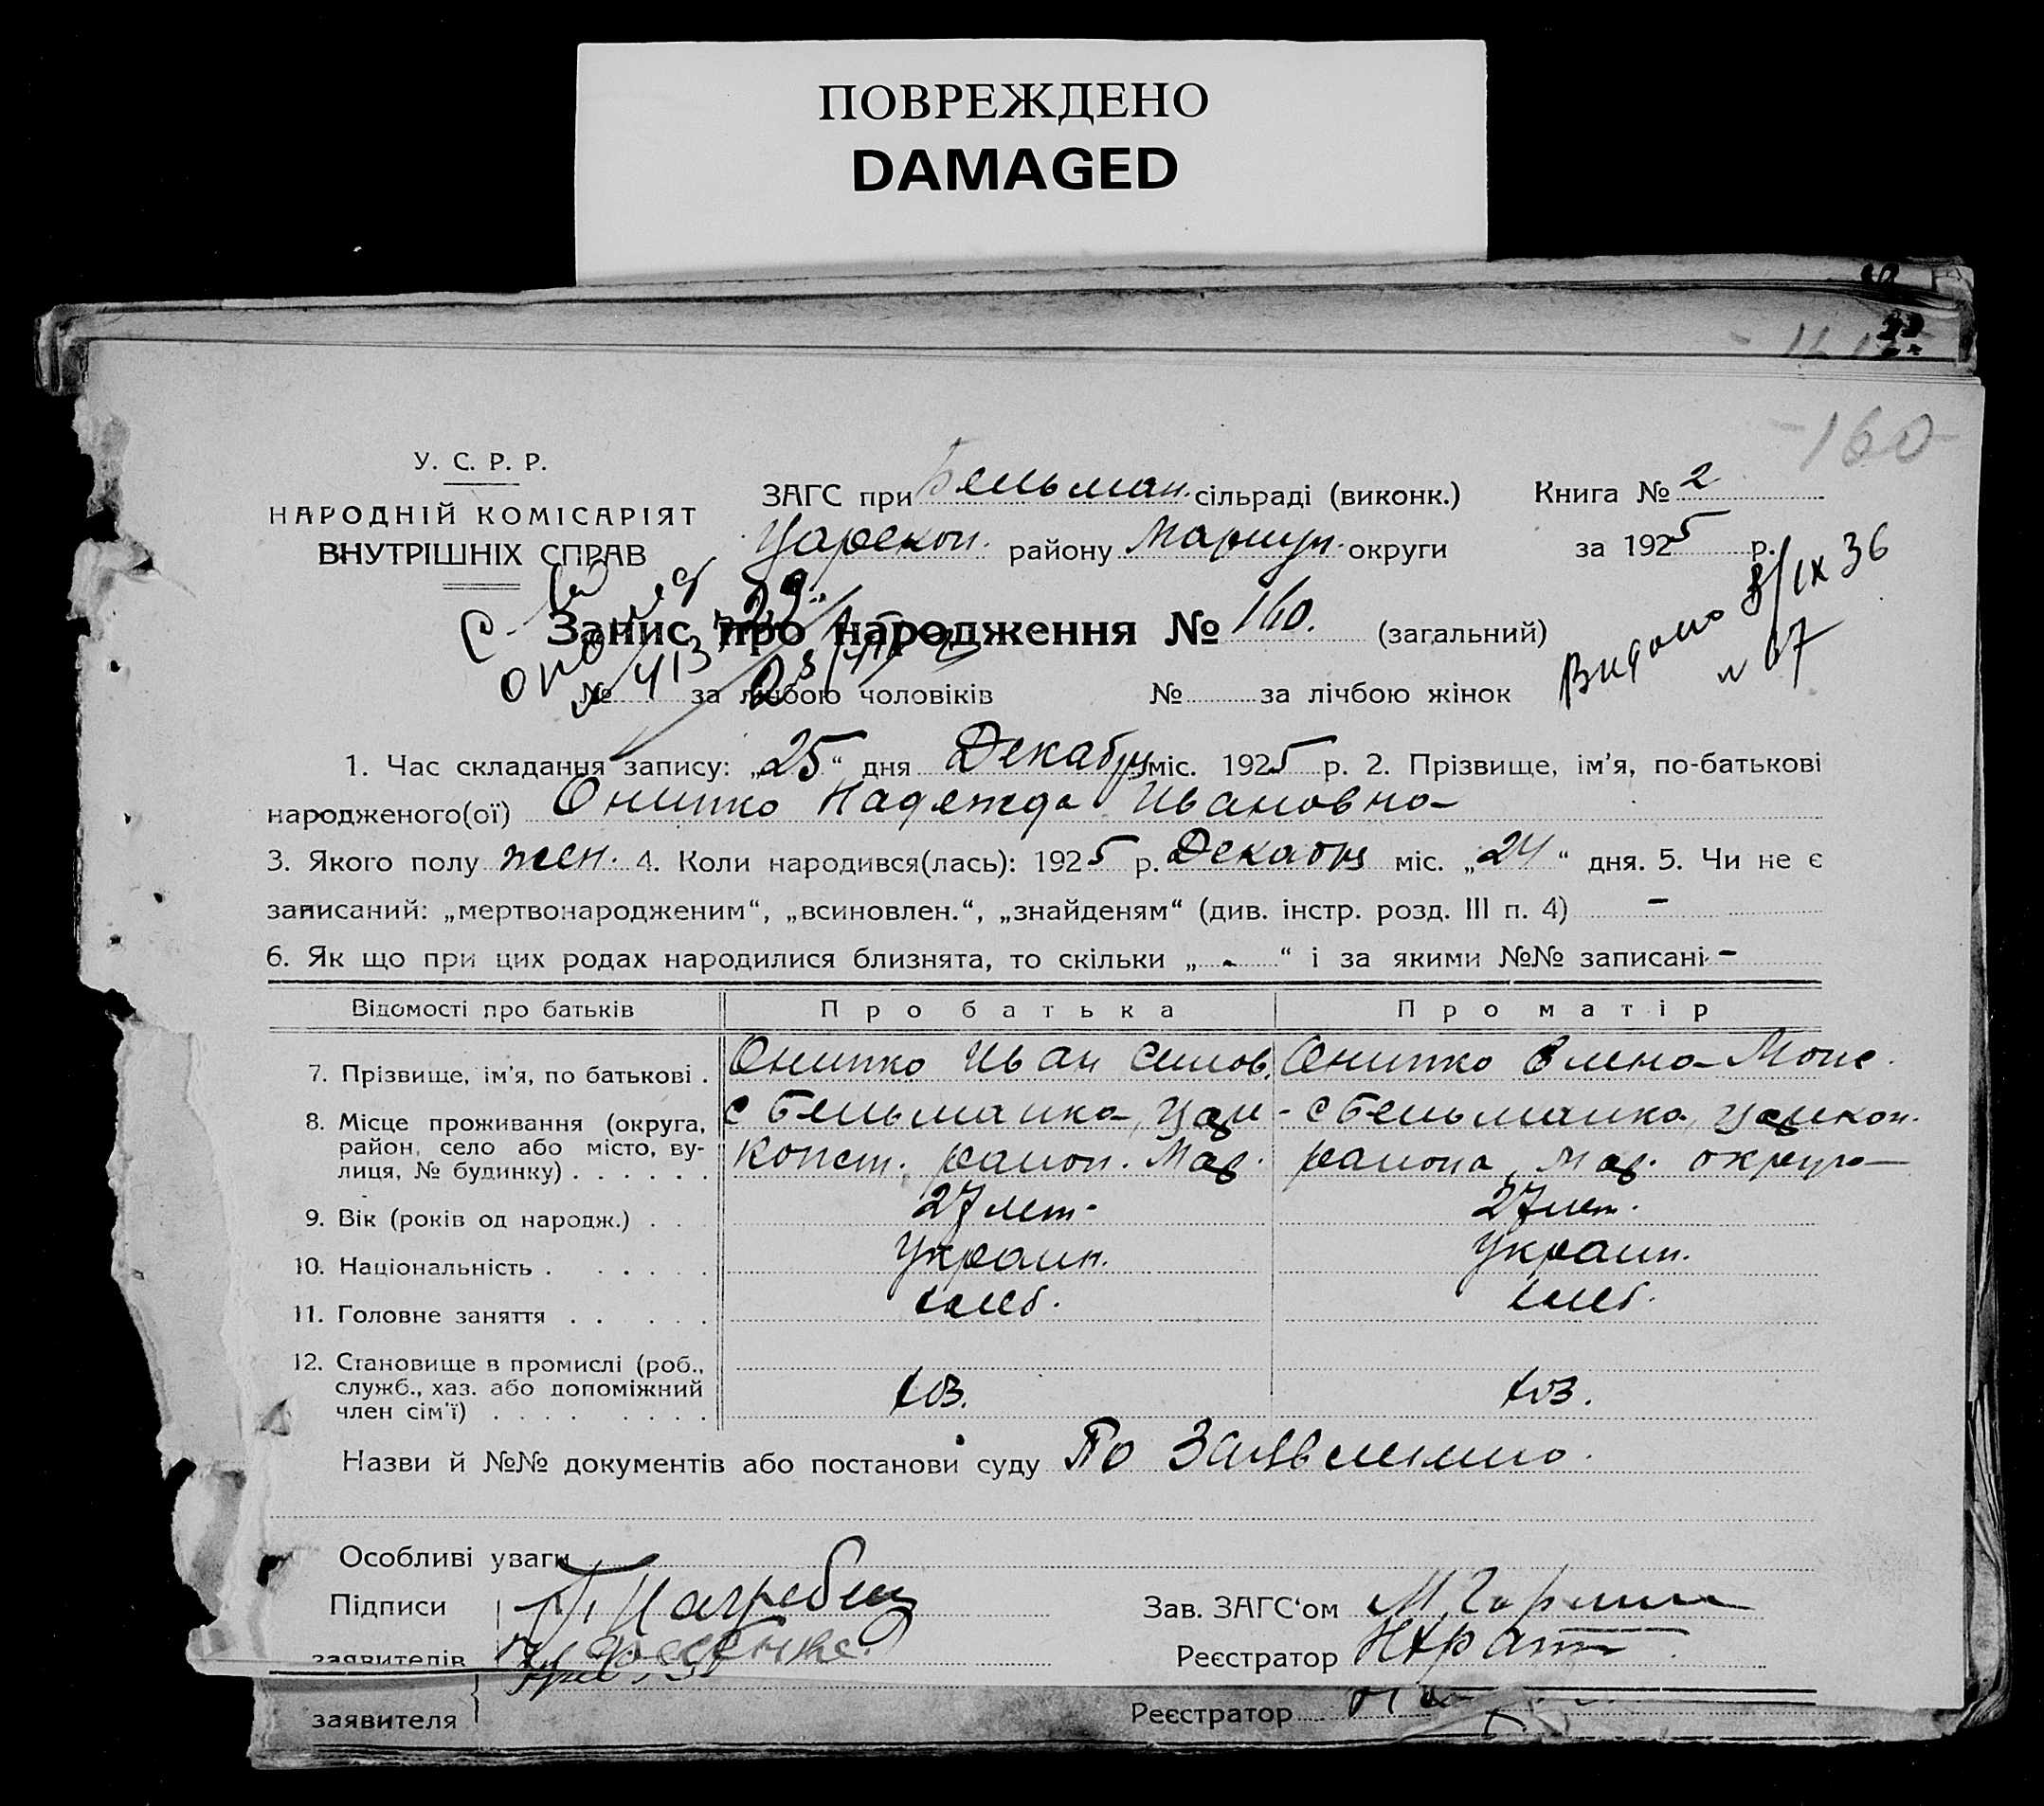 ПОВРЕЖДЕНО
DAMAGED
160
У. С. Р. Р.
НАРОДНІЙ КОМІСАРІЯТ
ВНУТРІШНІХ СПРАВ
ЗАГС при Бельман. сільраді (виконк.) Книга № 2
Царекон. району Мариуп. округи за 1925 р.
Видано 8/IX 36
№ 67
Запис про народження № 160. (загальний)
№ за лічбою чоловіків № за лічбою жінок
1. Час складання запису: „25“ дня Декабря міс. 1925 р. 2. Прізвище, ім’я, по-батькові
народженого(ої) Онипко Надежда Ивановна
3. Якого полу жен. 4. Коли народився(лась): 1925 р. Декабря міс. „24“ дня. 5. Чи не є
записаний: „мертвонародженим“, „всиновлен.“, „знайденям“ (див. інстр. розд. III п. 4) -
6. Як що при цих родах народилися близнята, то скільки „-“ і за якими №№ записані -
Відомості про батьків Про батька Про матір
7. Прізвище, ім’я, по батькові . Онипко Иван Онипко Елена
8. Місце проживання (округа, район, село або місто, вулиця, № будинку) . . . . . . с Бельманка, Цари- с Бельманка, Царикон.
Конст. район. Мар. района, Мар. округа
9. Вік (років од народж.) . . . 27 лет. 27 лет.
10. Національність . . . . . . Украин. Украин.
11. Головне заняття . . . . . . хлеб. хлеб.
12. Становище в промислі (роб., служб., хаз. або допоміжний член сім’ї) . . . . . . . . хоз. хоз.
Назви й №№ документів або постанови суду По Заявлению.
Особливі уваги
Підписи Зав. ЗАГС‘ом
заявителів Реєстратор
заявителя Реєстратор